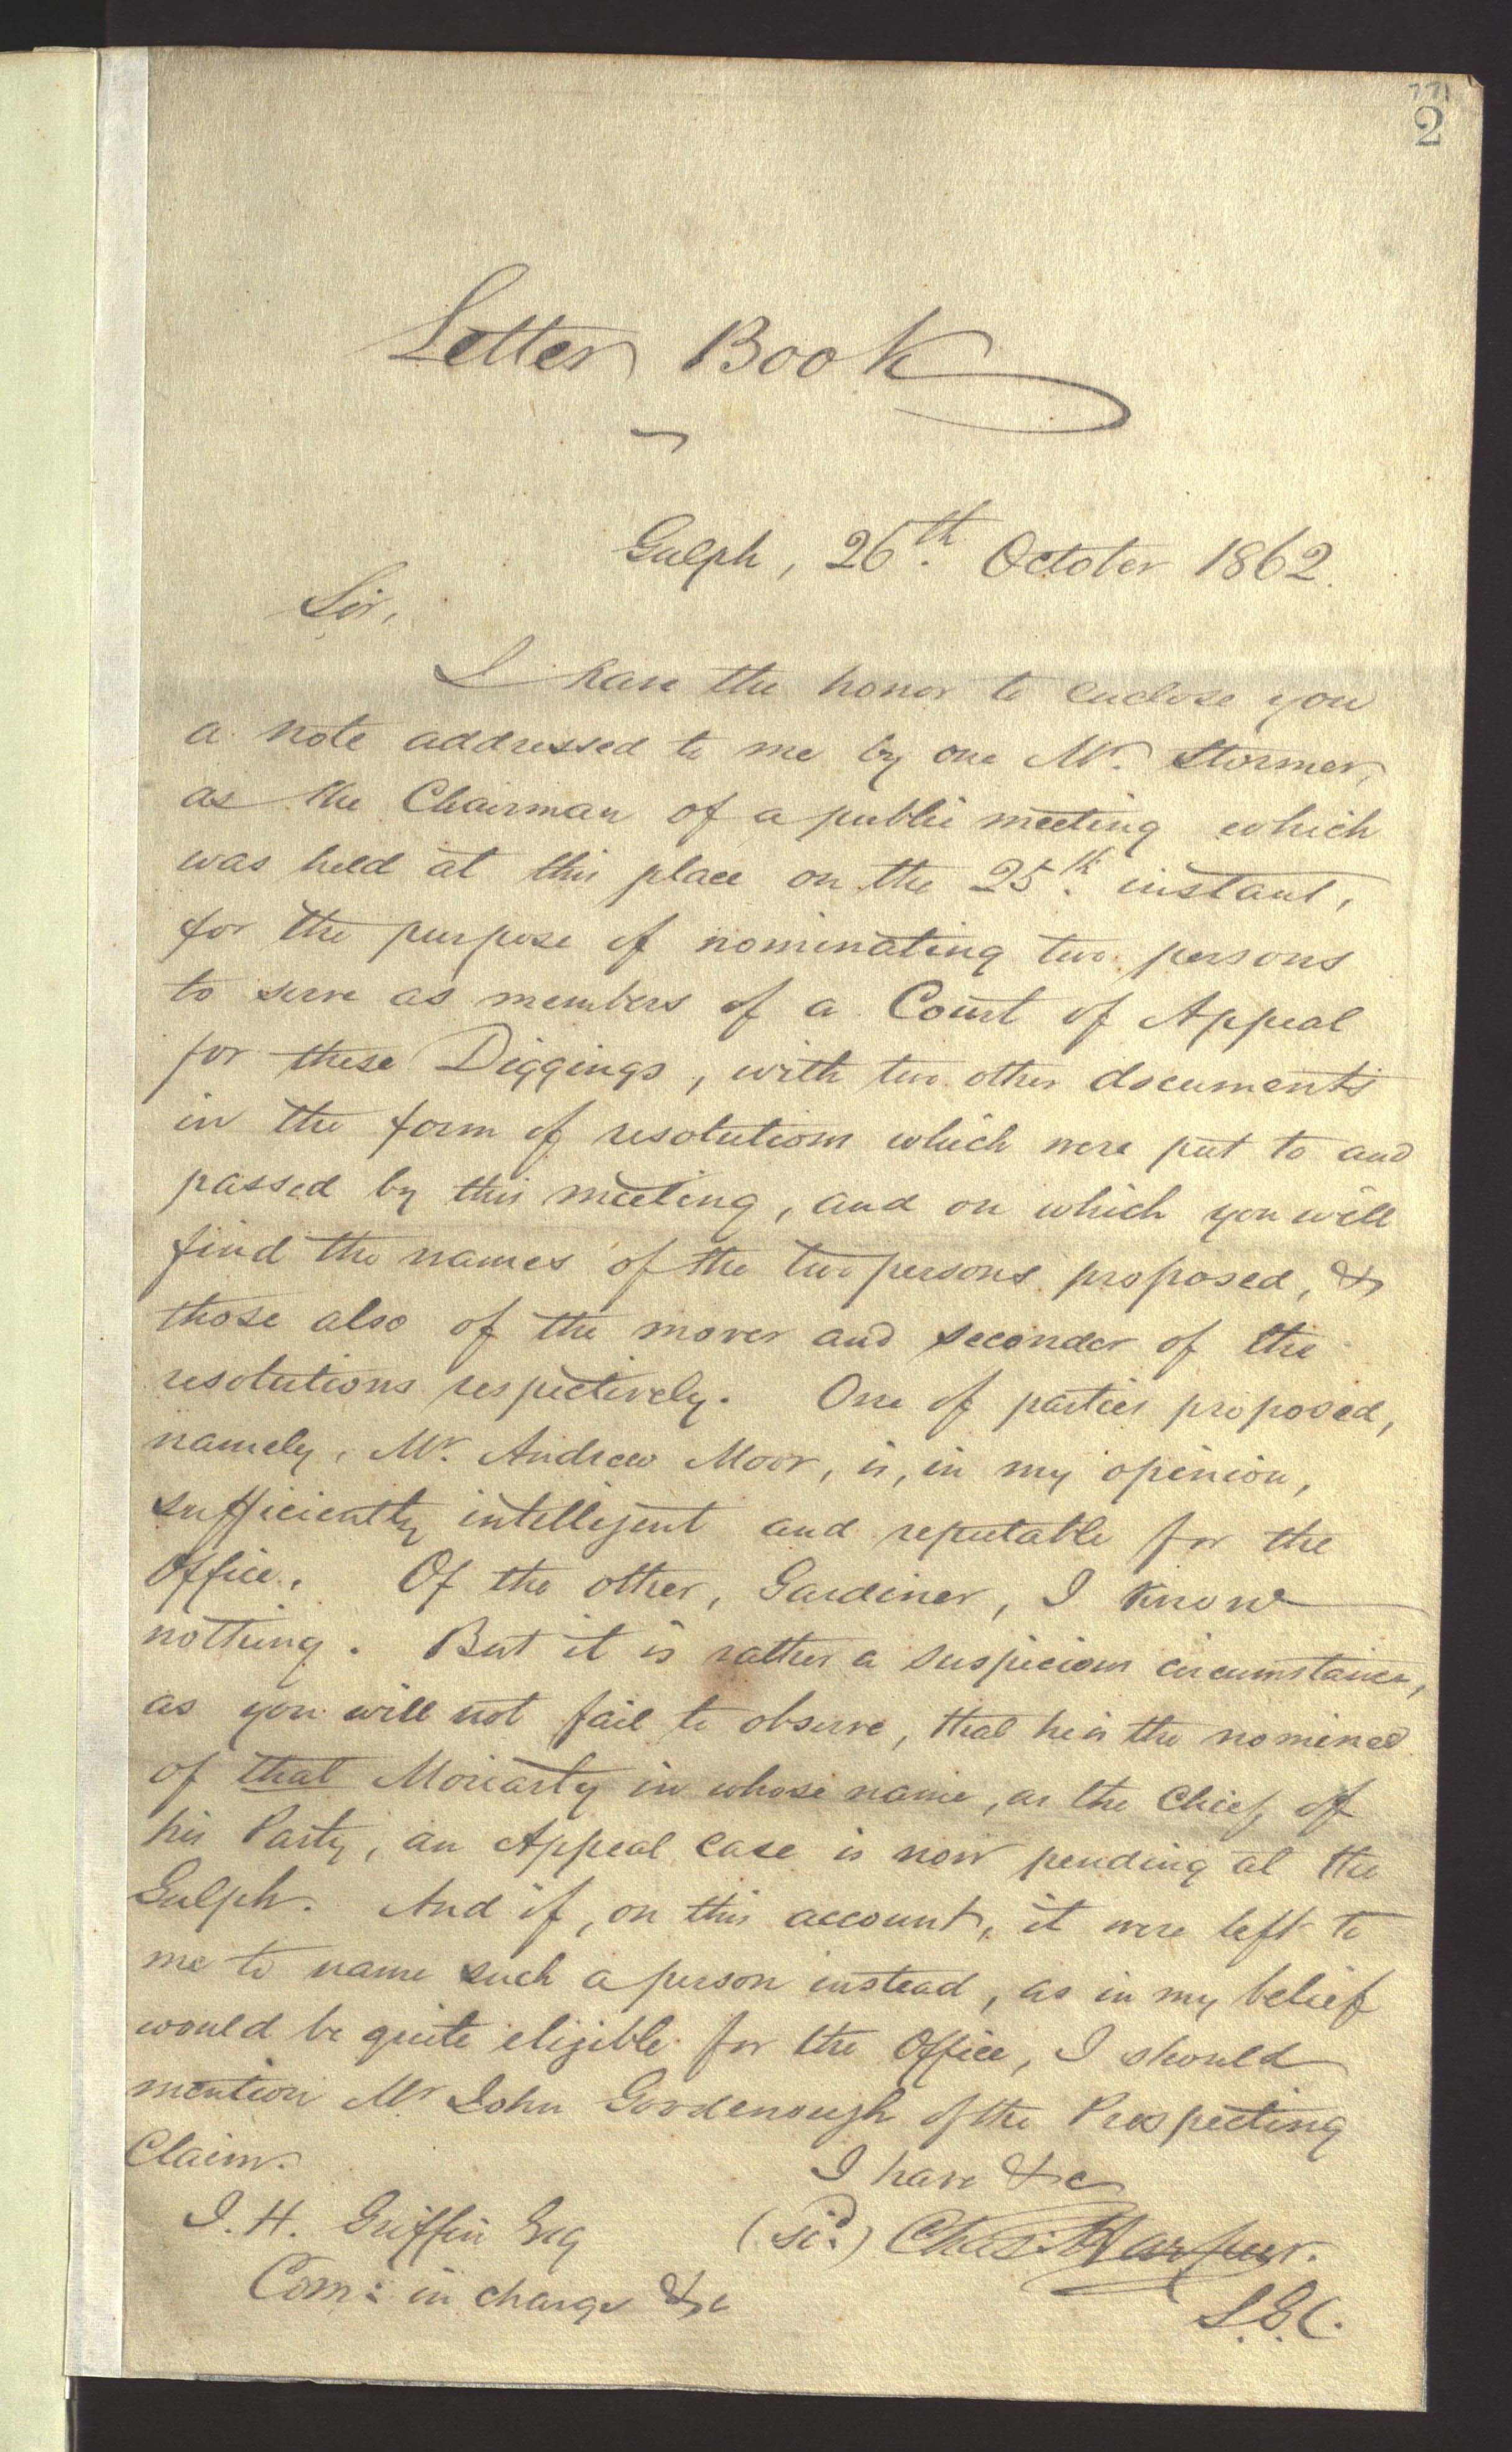 771
2
Letter Book
Gulph, 26th. October 1862.
Sir,
I have the honor to enclose you
a note addressed to me by one Mr. Stormer,
as the Chairman of a public meeting which
was held at this place on the 25th. instant,
for the purpose of nominating two persons
to serve as members of a Court of Appeal
for these Diggings, with two other documents
in the form of resolutions which were put to and
passed by this meeting, and on which you will
find the names of the two persons proposed, &
those also of the mover and seconder of the
resolutions respectively. One of parties proposed,
namely, Mr. Andrew Moor, is, in my opinion,
sufficiently intelligent and reputable for the
Office. Of the other, Gardiner, I know
nothing. But it is rather a suspicious circumstance,
as you will not fail to observe, that he is the nominee
of that Moriarty in whose name, as the Chief of
his Party, an Appeal case is now pending at the
Gulph. And if, on this account, it were left to
me to name such a person instead, as in my belief
would be quite eligible for the Office, I should
mention Mr John Goodenough of the Prospecting
Claim.
I have &c
J. H. Griffin Esq
(sid.) Chas. Harpur.
Com: in charge &c
S.G.C.